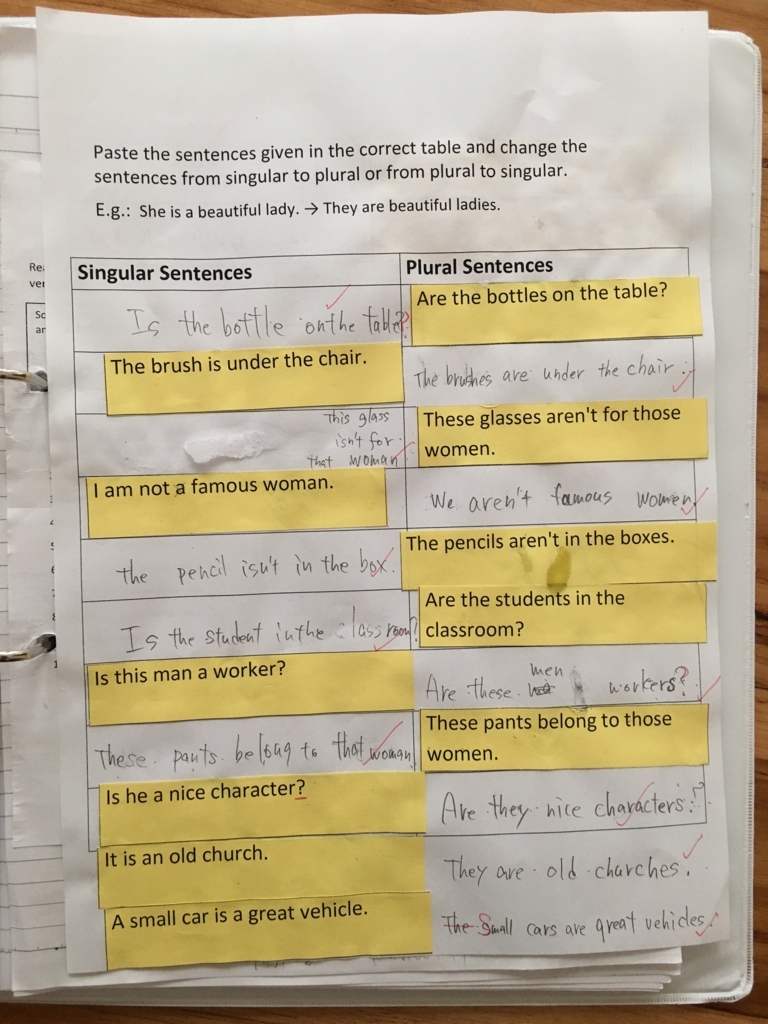 Paste the sentences given in the correct table and change the
sentences from singular to plural or from plural to singular.
E.g.: She is a beautiful lady. → They are beautiful ladies.
Singular Sentences
Plural Sentences
Is the bottle on the table?
Are the bottles on the table?
The brush is under the chair.
The brushes are under the chair.
This glass
isn't for
that woman
These glasses aren't for those
women.
I am not a famous woman.
We aren't famous women
The pencil isn't in the box.
The pencils aren't in the boxes.
Is the student in the classroom?
Are the students in the
classroom?
Is this man a worker?
Are these men workers?
These pants belong to that woman
These pants belong to those
women.
Is he a nice character?
Are they nice characters?
It is an old church.
They are old churches.
A small car is a great vehicle.
The Small cars are great vehicles.